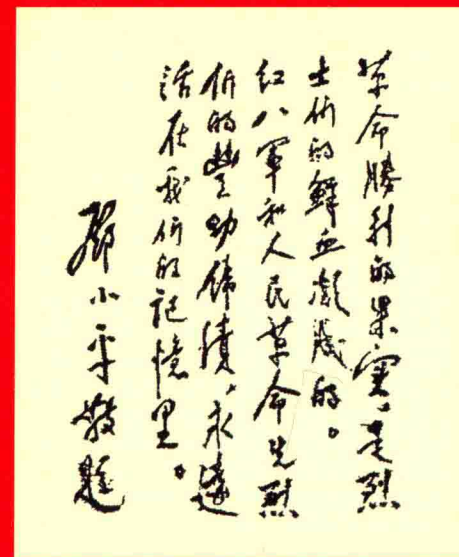 革命勝利的果实，是烈
士们的鲜血凝成的。
红八軍和人民革命先烈
们的豐功偉績，永遠
活在我们的記憶里。
鄧小平敬題